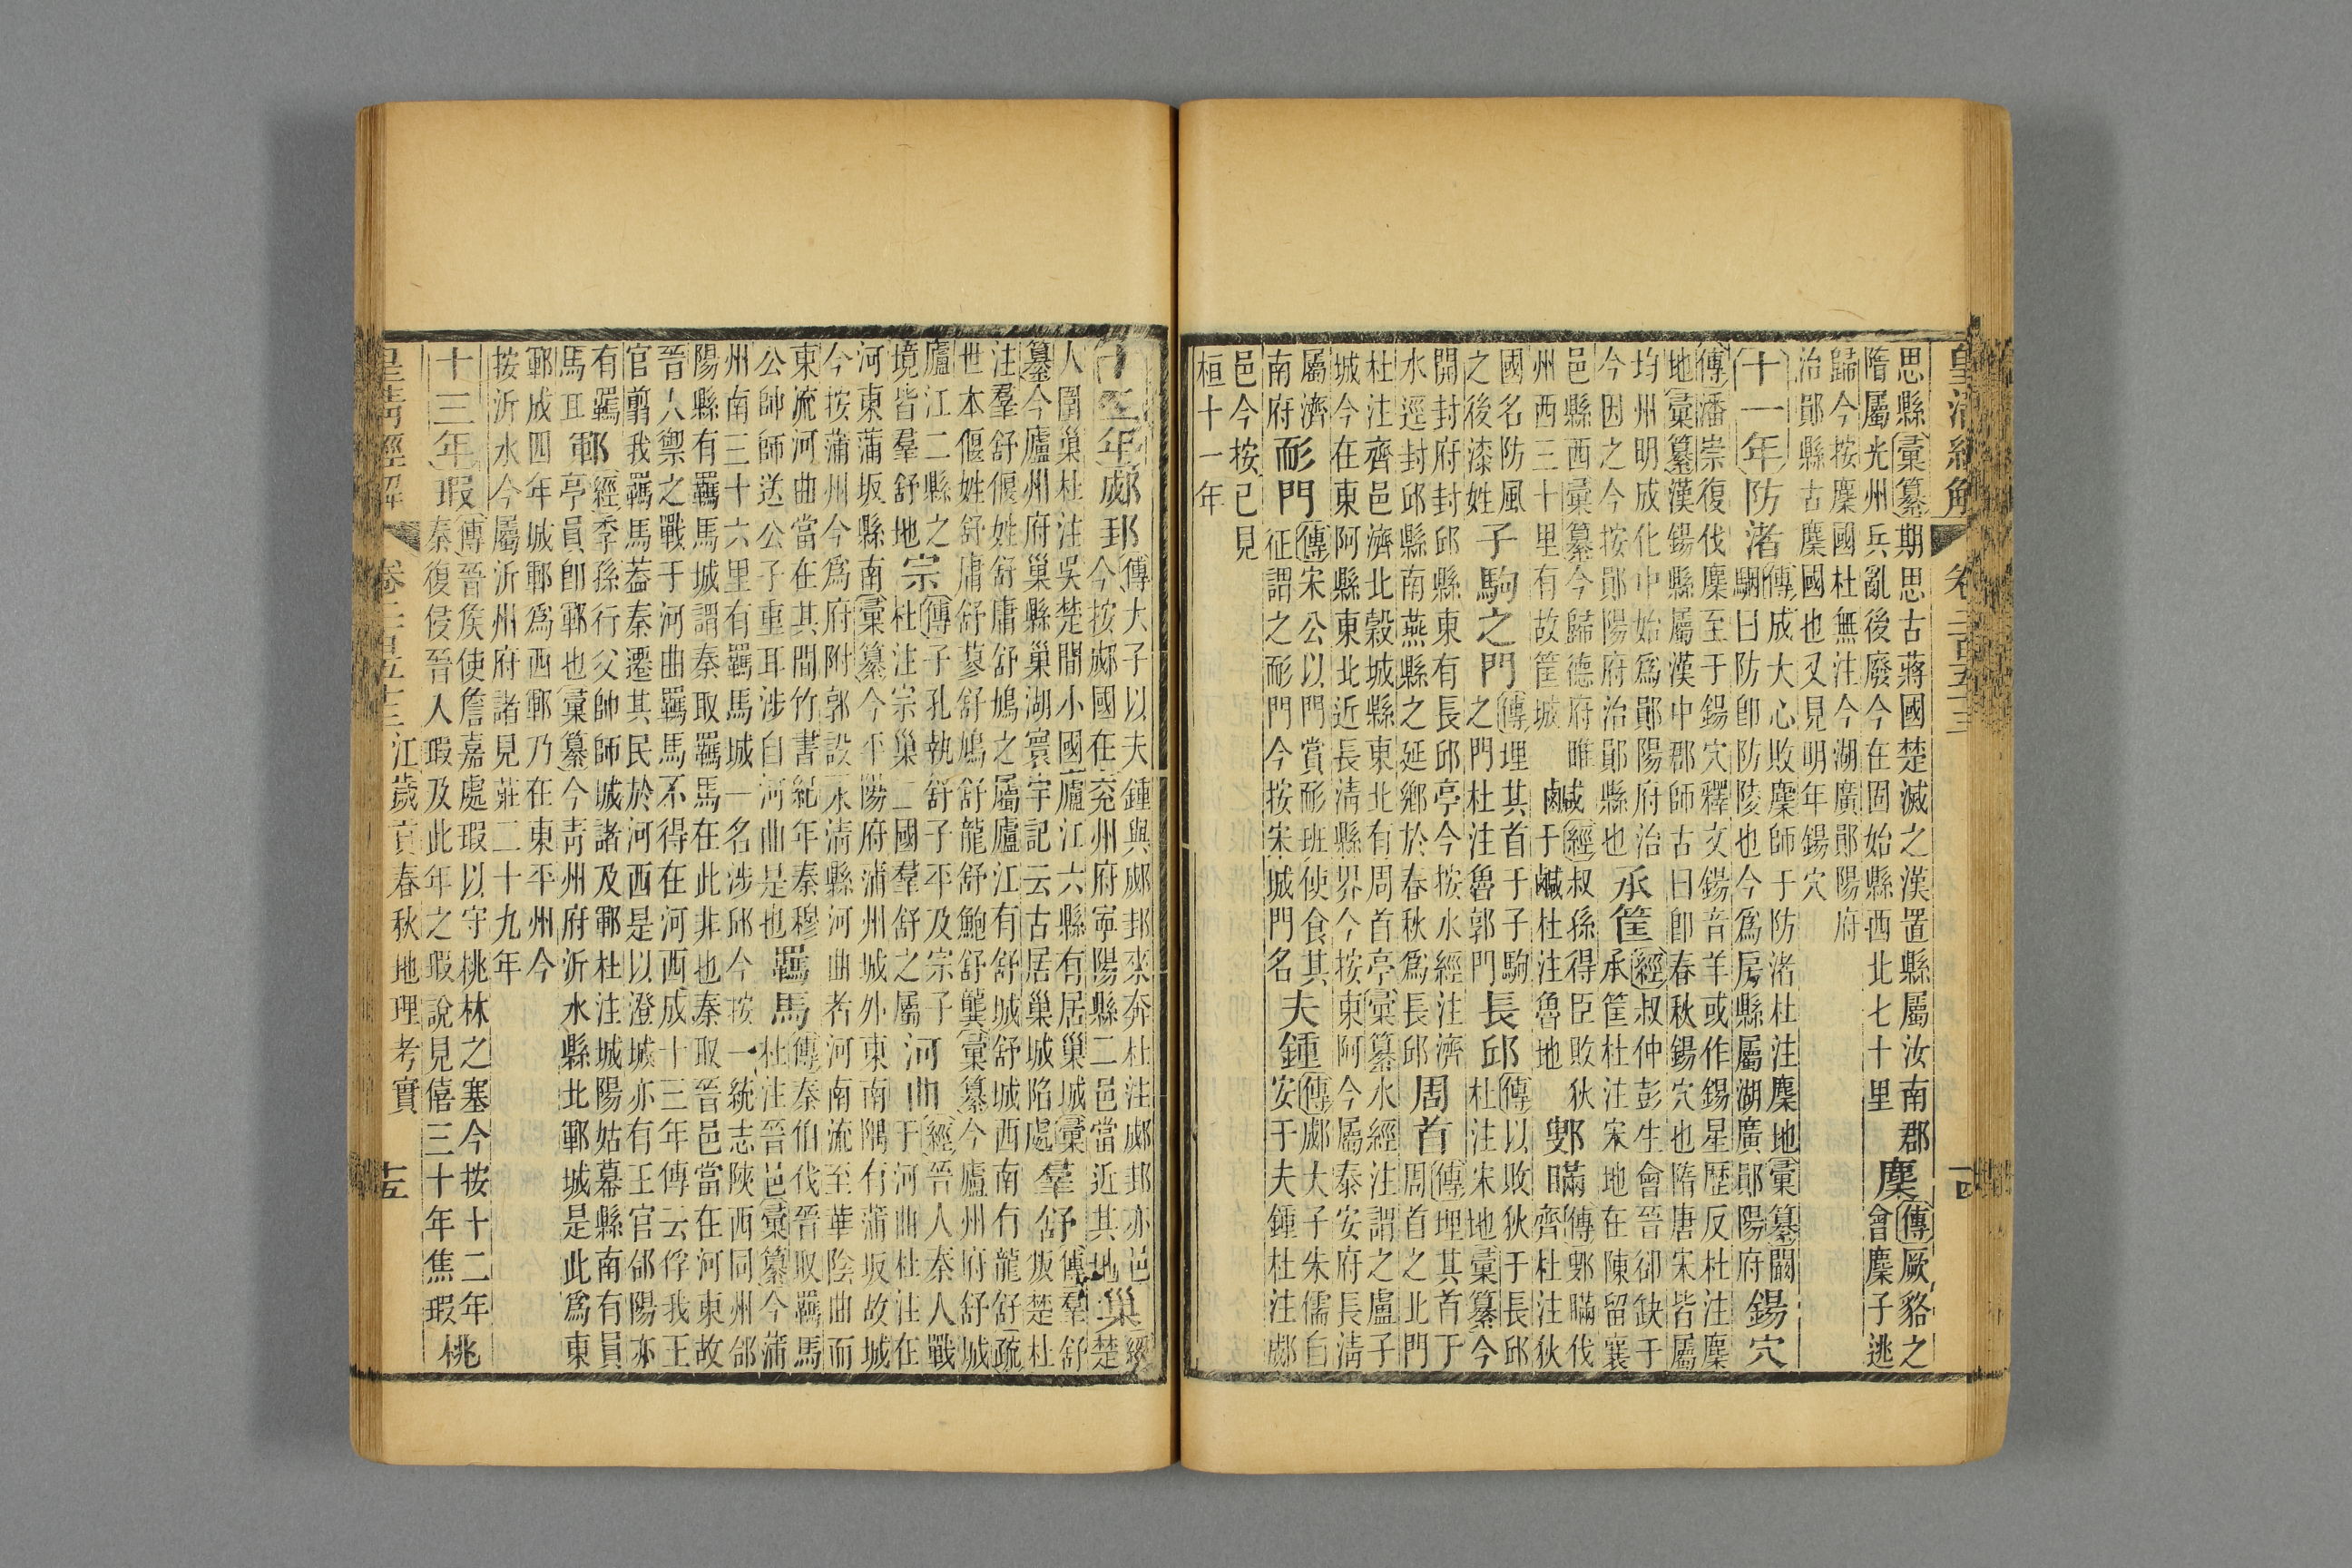 皇清經解 卷二百五十三 十四
思縣彙纂期思古蔣國楚滅之漢置縣屬汝南郡
隋屬光州兵亂後廢今在固始縣西北七十里
麇
傳厥貉之
會麇子逃
歸今按麇國杜無注今湖廣鄖陽府
治鄖縣古麇國也又見明年鍚穴
十一年 防渚
傳成大心敗麇師于防渚杜注麇地彙纂闞
駰曰防卽防陵也今爲房縣屬湖廣鄖陽府
鍚穴
傳潘崇復伐麇至于鍚穴釋文鍚音羊或作錫星歷反杜注麇
地彙纂漢鍚縣屬漢中郡師古曰卽春秋鍚穴也隋唐宋皆屬
均州明成化中始爲鄖陽府治
今因之今按鄖陽府治鄖縣也
承筐
經叔仲彭生會晉郤缺于
承筐杜注宋地在陳留襄
邑縣西彙纂今歸德府睢
州西三十里有故筐城
鹹
經叔孫得臣敗狄
于鹹杜注魯地
鄋瞞
傳鄋瞞伐
齊杜注狄
國名防風
之後漆姓
子駒之門
傳埋其首于子駒
之門杜注魯郭門
長邱
傳以敗狄于長邱
杜注宋地彙纂今
開封府封邱縣東有長邱亭今按水經注濟
水逕封邱縣南燕縣之延鄉於春秋爲長邱
周首
傳埋其首于
周首之北門
杜注齊邑濟北穀城縣東北有周首亭彙纂水經注謂之盧子
城今在東阿縣東北近長淸縣界今按東阿今屬泰安府長淸
屬濟
南府
耏門
傳宋公以門賞耏班使食其
征謂之耏門今按宋城門名
夫鍾
傳郕太子朱儒自
安于夫鍾杜注郕
邑今按已見
桓十一年
十二年 郕邽
傳大子以夫鍾與郕邽來奔杜注郕邽亦邑
今按郕國在兗州府寧陽縣二邑當近其地
巢
經
楚
人圍巢杜注吳楚間小國廬江六縣有居巢城彙
纂今廬州府巢縣巢湖寰宇記云古居巢城陷處
羣舒
傳羣舒
叛楚杜
注羣舒偃姓舒庸舒鳩之屬廬江有舒城舒城西南有龍舒疏
世本偃姓舒庸舒蓼舒鳩舒龍舒鮑舒龔彙纂今廬州府舒城
廬江二縣之
境皆羣舒地
宗
傳子孔執舒子平及宗子
杜注宗巢二國羣舒之屬
河曲
經晉人秦人戰
于河曲杜注在
河東蒲坂縣南彙纂今平陽府蒲州城外東南隅有蒲坂故城
今按蒲州今爲府附郭設永濟縣河曲者河南流至華陰曲而
東流河曲當在其間竹書紀年秦穆
公帥師送公子重耳涉自河曲是也
羈馬
傳秦伯伐晉取羈馬
杜注晉邑彙纂今蒲
州南三十六里有羈馬城一名涉邱今按一統志陝西同州郃
陽縣有羈馬城謂秦取羈馬在此非也秦取晉邑當在河東故
晉人禦之戰于河曲羈馬不得在河西成十三年傳云俘我王
官翦我羈馬蓋秦遷其民於河西是以澄城亦有王官郃陽亦
有羈
馬耳
鄆
經季孫行父帥師城諸及鄆杜注城陽姑幕縣南有員
亭員卽鄆也彙纂今靑州府沂水縣北鄆城是此爲東
鄆成四年城鄆爲西鄆乃在東平州今
按沂水今屬沂州府諸見莊二十九年
十三年 瑕
傳晉侯使詹嘉處瑕以守桃林之塞今按十二年
秦復侵晉人瑕及此年之瑕說見僖三十年焦瑕
桃
皇淸經解 卷二百五十三 江歲貢春秋地理考實 十五